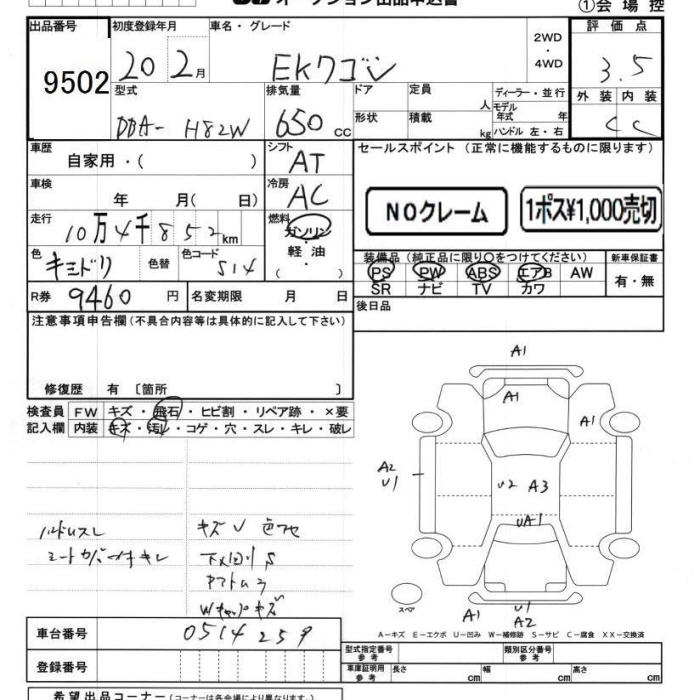 オークション出品申込書
①会場控
出品番号 初度登録年月 車名・グレード 評価点
9502 20 2月 EKワゴン 2WD・4WD 3.5
型式 排気量 ドア 定員 人 ディーラー・並行 外装 内装
DBA- H82W 650 cc 形状 積載 kg モデル年式 年 C C
ハンドル 左・右
車歴 シフト セールスポイント (正常に機能するものに限ります)
自家用・( ) AT
車検 冷房
年 月( 日) AC NOクレーム 1ポス¥1,000売切
走行 燃料
10万4千852km ガソリン・軽油・( )
色 色替 色コード 装備品 (純正品に限り○をつけてください) 新車保証書
キミドリ S14 PS PW ABS エアB AW 有・無
SR ナビ TV カワ
R券 9460円 名変期限 月 日 後日品
注意事項申告欄(不具合内容等は具体的に記入して下さい)
修復歴 有 〔箇所 〕
検査員 FW キズ・飛石・ヒビ割・リペア跡・×要
記入欄 内装 キズ・汚レ・コゲ・穴・スレ・キレ・破レ
A1
A1
A1
A2
U1
U2 A3
UA1
ハンドルスレ
シートカバー付キレ
キズU色アセ
下廻りS
Wキャップキズ
スペア
A1
U1
A2
A-キズ E-エクボ U-凹み W-補修跡 S-サビ C-腐食 XX-交換済
車台番号 0514259
型式指定番号 参考 類別区分番号 参考
登録番号 車庫証明用 参考 長さ cm 幅 cm 高さ cm
希望出品コーナー(コーナーは各会場により異なります。)